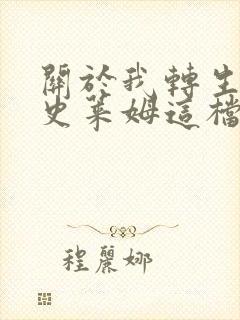 關於我轉生
史萊姆這檔
程麗娜